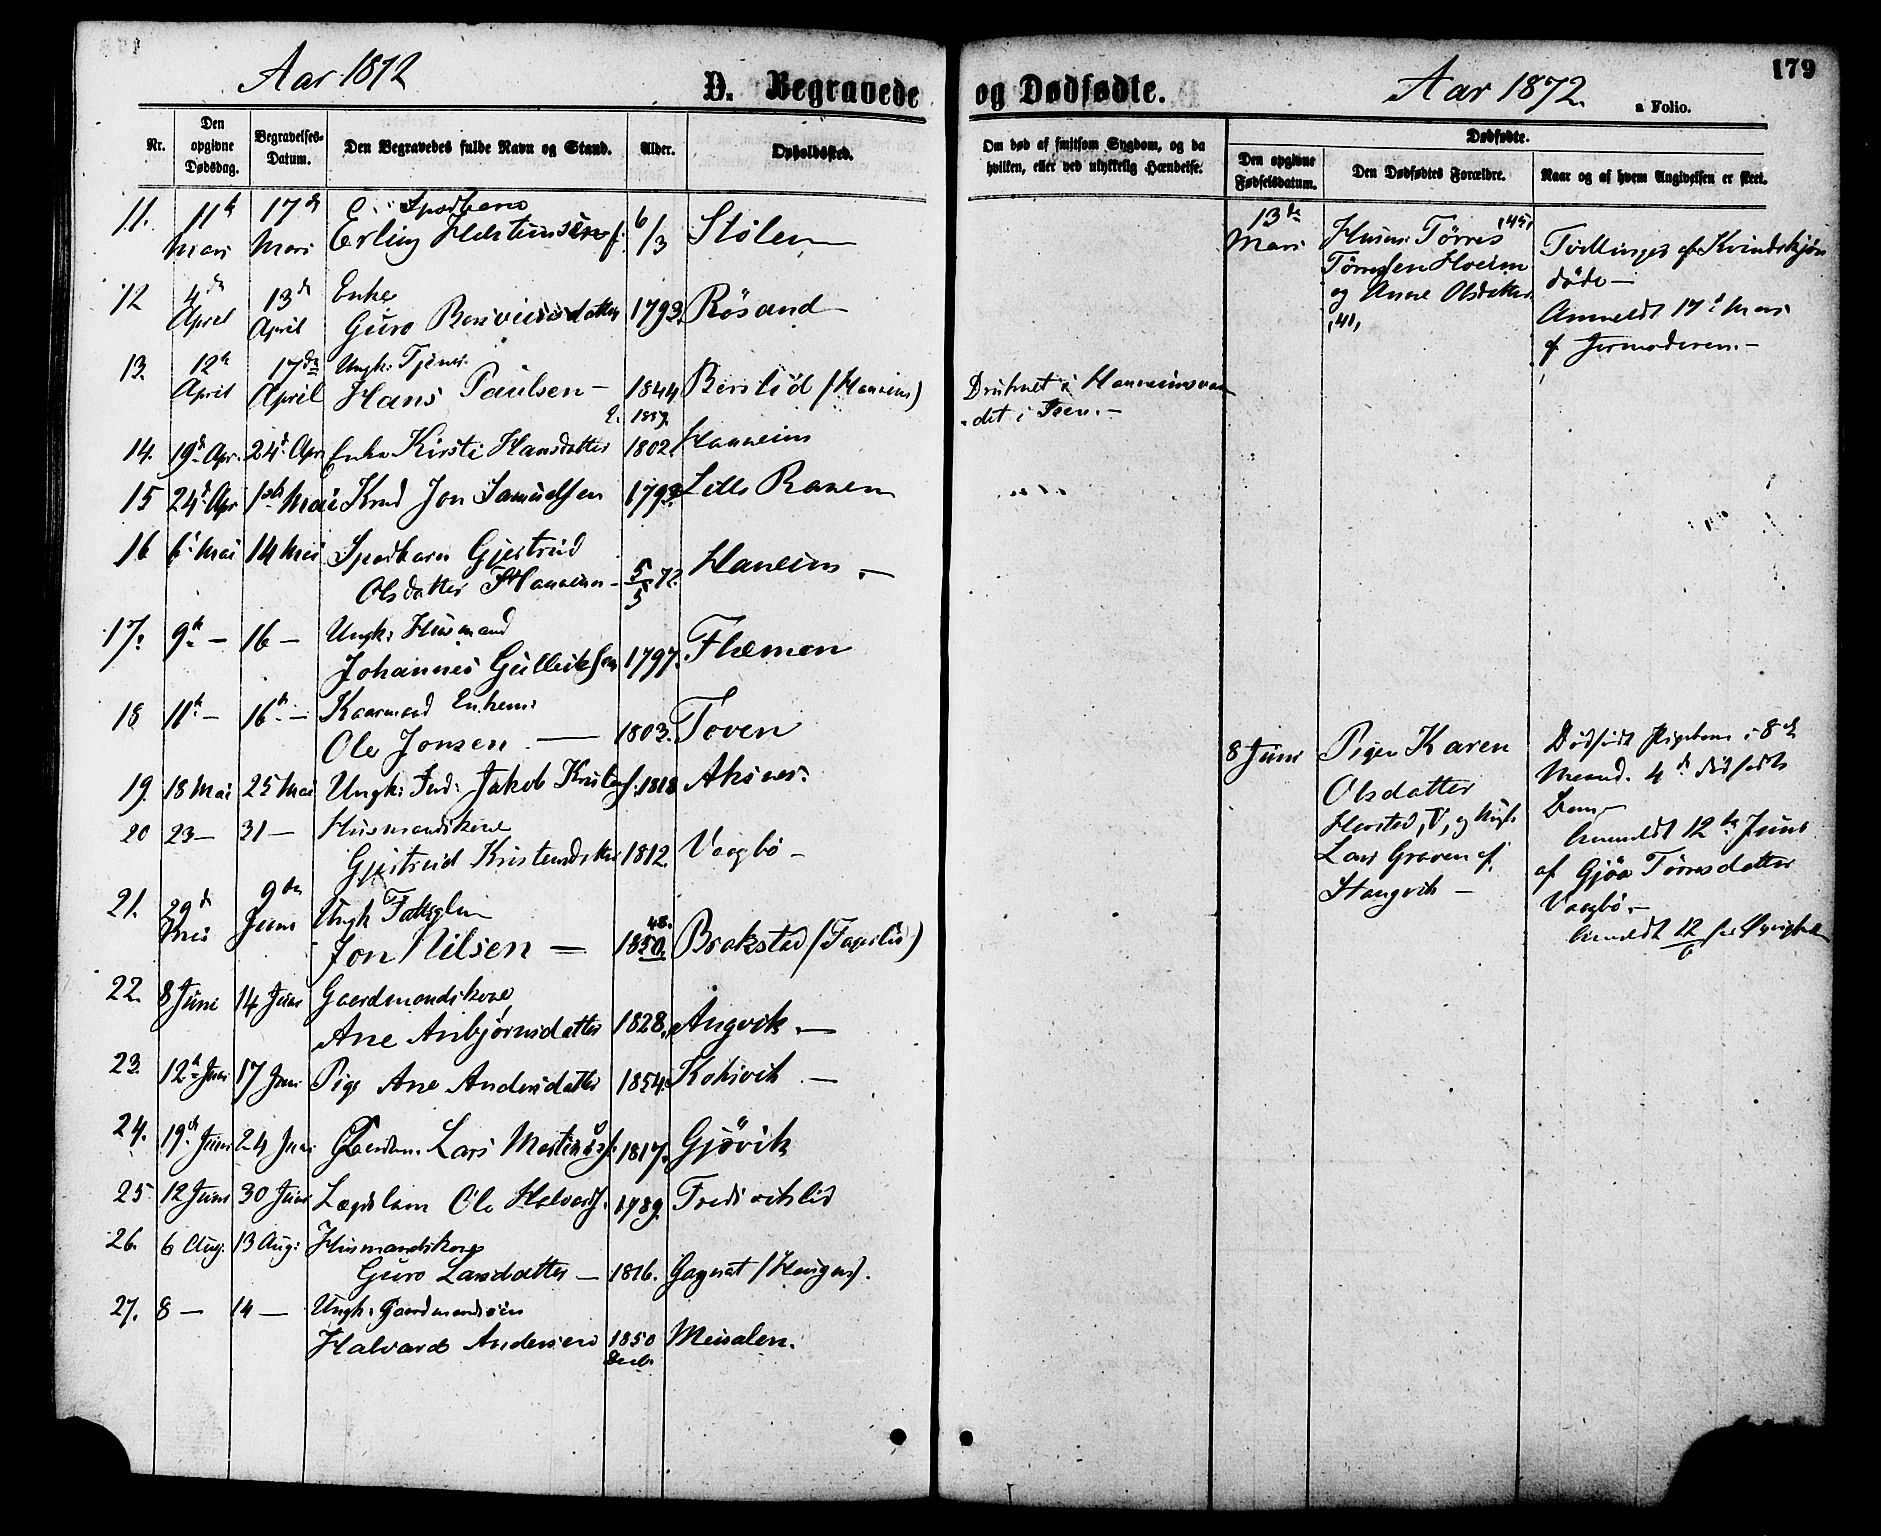 Aar 1872
D. Begravede
Nr.
Den opgivne Dødsdag.
Begravelses-Datum.
Den Begravedes fulde Navn og Stand.
Alder.
Opholdssted.
11. 11te Mars 17de Mars Spædbarn
Erling 6/3 Stølen —
12 4de April 13de April Enke
Guro 1793. Røsand —
13. 12te April 17de April Ungk: Tjener
Hans Paulsen — 1844 Berilød (Haneim)
14. 19de Apr. 24de Apr Enke Kirsti Hansdatter 1802. Haaneim
15 24de Apr 1ste Mai Jon Samuelsen 1793. Lille Ranem
16 Mai 14 Mai Spædbarn Gjertrud
Olsdatter Haaneim — 5/5 72. Haneim. —
17. 9de — 16 — Ungk: Husmand
Johannes Gulliksen 1797. Flemen
18 11te — 16de — Kaarmand Enkem:
Ole Jonsen. — 1803. Toven
19. 18 Mai 25 Mai Ungk: Ind: Jakob 1818 Aksnes.
20 23 — 31 — Husmandskone
Gjertrud 1812. Vaagbø —
21. 29de Mai 9de Juni Ungk Fattiglem
Jon Nilsen = 48. 1850. Brokstad (Fagerlid)
22. 8 Juni 14 Juni Gaardmandskone
Ane Anbjørnsdatter 1828. Angvik. —
23. 12te Juni 17 Juni Pige Ane Andersdatter 1854. Koksvik —
24. 19de Juni 24 Juni Gaardm. Lars 1817. Gjøvik
25 12 Juni 30 Juni Lægdslem Ole Halvards. 1789. Fredsvikslid
26. 6 Aug: 13 Aug: Husmandskone
Guro Larsdatter — 1816. Gagnat (Haugen).
27. 8 — 14 — Ungk: Gaardmandssøn
Halvard Andersen 1850 Decb. Meisalen.
og Dødfødte.
Aar 1872.
a Folio.
179
Om død af smitsom Sygdom, og da
hvilken, eller ved ulykkelig Hændelse.
Dødfødte.
Den opgivne Fødselsdatum.
Den Dødfødtes Forældre.
Naar og af hvem Angivelsen er skeet.
13de Mars
Husm: Tørres „45„
Tørressen Hoeim
og Anne Olsdatter
„41„
Tvillinger af Kvindekjøn
døde —
Anmeldt 17de Mars
af Jormoderen. —
Druknet i Haneimsvan
-det i Isen. —
8 Juni
Pigen Karen
Olsdatter
Harstad, V, og Ungk:
Lars Graven af
Stangvik —
Dødfødt Pigebarn i 8de
Maaned. 4de dødfødte
Barn —
Anmeldt 12te Juni
af Gjøa Tørresdatter
Vaagbø. —
Anmeldt 12/6